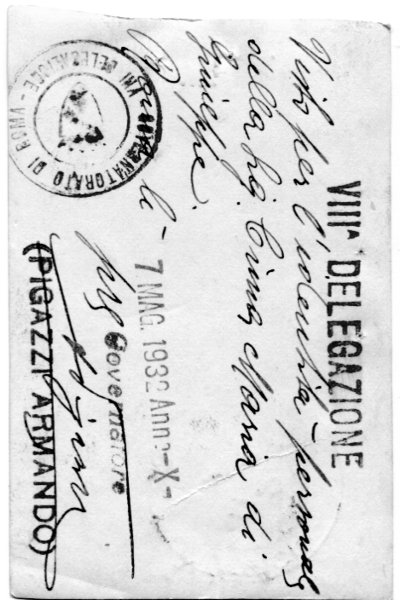 VIIIᴬ DELEGAZIONE
Visto per l'identità personale
della Sig. Cima Maria di
Giuseppe.
Roma, li - 7 MAG. 1932 Anno -X-
Governatore
(PIGAZZI ARMANDO)
GOVERNATORATO DI ROMA - VIII DELEGAZIONE